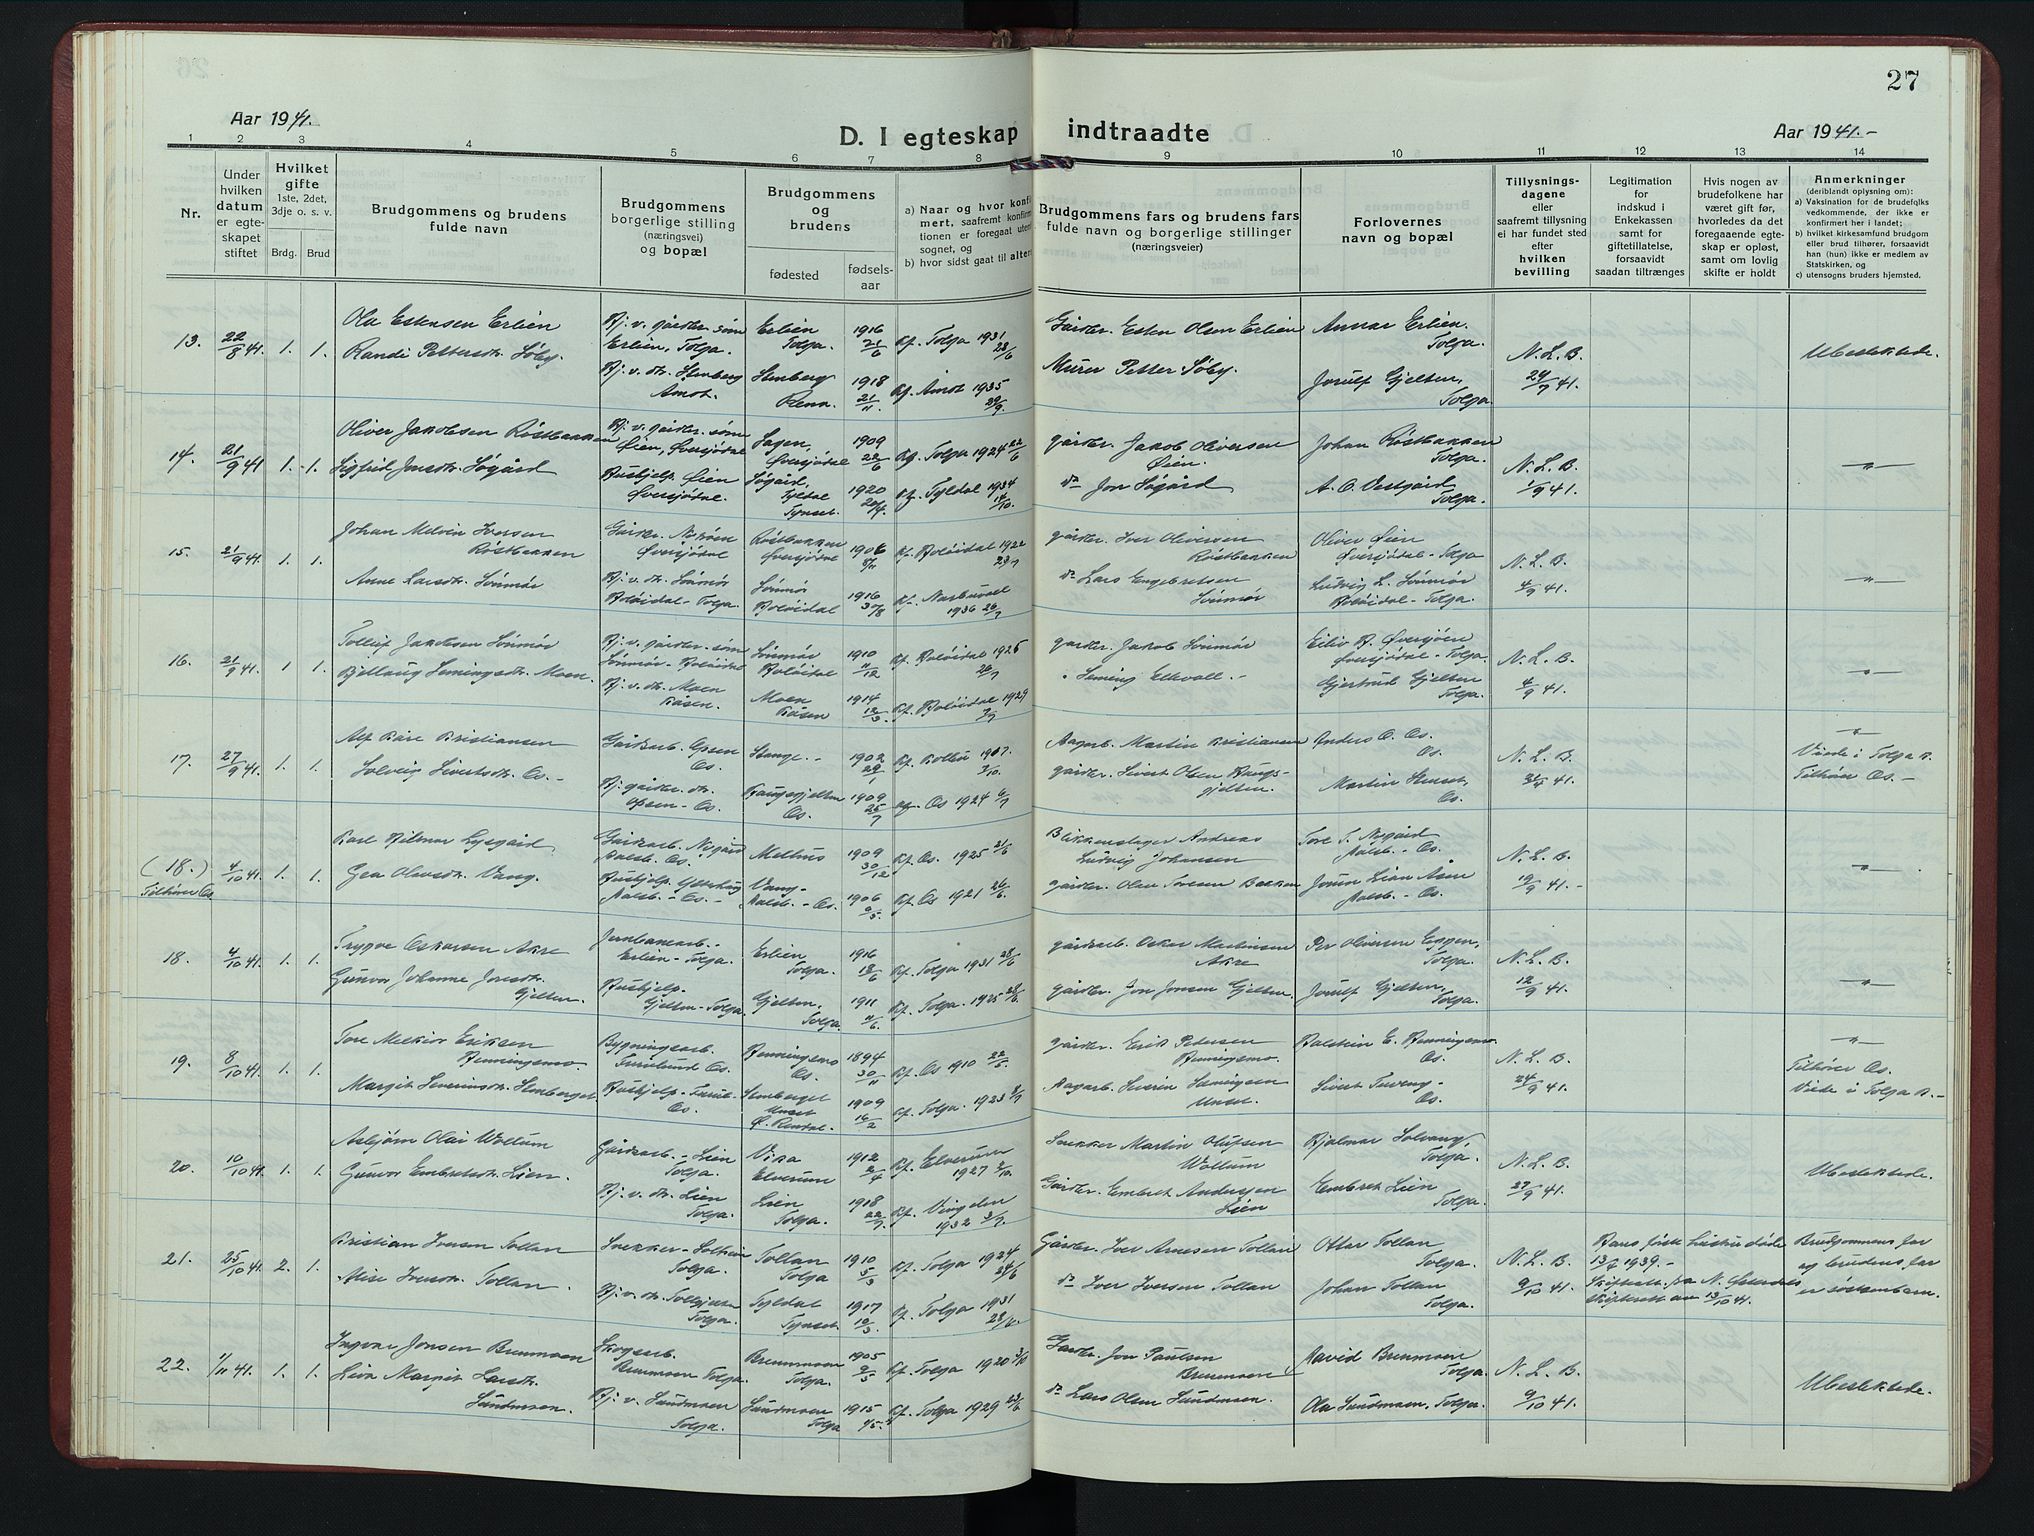 27
Aar 1941.
D. I egteskap indtraadte
Aar 1941.-
1 2 3 4 5 6 7 8 9 10 11 12 13 14
Nr.
Under hvilken datum er egte-skapet stiftet
Hvilket gifte 1ste, 2det, 3dje o. s. v.
Brdg. Brud
Brudgommens og brudens fulde navn
Brudgommens borgerlige stilling (næringsvei) og bopæl
Brudgommens og brudens
fødested
fødsels-aar
a) Naar og hvor konfi
mert, saafremt konfirm
tionen er foregaat uten
sognet, og
b) hvor sidst gaat til alter
Brudgommens fars og brudens fars fulde navn og borgerlige stillinger (næringsveier)
Forlovernes navn og bopæl
Tillysnings-dagene eller saafremt tillysning ei har fundet sted efter hvilken bevilling
Legitimation for indskud i Enkekassen samt for giftetillatelse, forsaavidt saadan tiltrænges
Hvis nogen av brudefolkene har været gift før, hvorledes da det foregaaende egte-skap er opløst, samt om lovlig skifte er holdt
Anmerkninger (deriblandt oplysning om):
a) Vaksination for de brudefolks vedkommende, der ikke er konfirmert her i landet;
b) hvilket kirkesamfund brudgom eller brud tilhører, forsaavidt han (hun) ikke er medlem av Statskirken, og
c) utensogns bruders hjemsted.
13. 22/8 41. 1. 1.
Ola Estensen Erlien
Randi Pettersdr. Søby.
Hj. v. gårdbr. søn Erlien, Tolga.
Hj. v. dr. Stenberg Åmot.
Erlien Tolga. 1916 21/6
Stenberg Rena. 1918 21/11
Kf. Tolga 1931 28/6
Kf. Åmot 1935 29/9.
Gårdbr. Esten Olsen Erlien
Murer Petter Søby.
Annar Erlien. Tolga.
Jorulf Gjelten, Tolga.
N. L. B. 24/7 41.
Ubeslektede.
14. 21/9 41 1. 1.
Oliver Jakobsen Røstbakken
Sigfrid Jonsdr. Søgård
Hj. v. gårdbr. søn Øien, Øversjødal
Hushjelp Øien Øversjødal.
Hagen, Øversjødal 1909 22/6
Søgård, Tyldal Tynset. 1920 20/4.
Kf. Tolga 1924 22/6
Kf. Tyldal 1934 14/10.
gårdbr. Jakob Oliversen Øien.
do Jon Søgård
Johan Røstbakken Tolga.
A. O. Vestgård Tolga.
N. L. B. 1/9 41.
15. 21/9 41. 1. 1.
Johan Melvin Iversen Røstbakken
Anne Larsdr. Sønmør
Øversjødal
Hj. v. dr. Sønmør Holøidal - Tolga.
Røstbakken Øversjødal 1906 8/11
Sønmør Holøidal 1916
Kf. Holøidal 1922
Kf. Narbuvoll 1936 26/7
gårdbr. Iver Oliversen Røstbakken
do Lars Engebretsen Sønmør
Oliver Øien Øversjødal - Tolga
Ludvig L. Sønmør Holøidal - Tolga.
N. L. B. 4/9 41.
16. 21/9 41. 1 1.
Tollef Jakobsen Sønmør
Kjellaug Hemingsdr. Moen.
Hj. v. gårdbr. søn Sønmør - Holøidal
Hj. v. dr. Moen Råsen.
Sønmør Holøidal 1910 11/12
Moen Råsen 1914 12/3
Kf. Holøidal 1925 26/7
Kf. Holøidal 1929
gårdbr. Jakob Sønmør
" Heming Elvevoll.-
Eiliv H. Øversjøen Øversjødal - Tolga.
Gjertrud Gjelten Tolga.
N. L. B. 4/9 41.
17. 27/9 41. 1. 1.
Alf Kåre Kristiansen
Solveig Sivertsdr. Os.-
Gårdsarb. Opsen Os.
Hj. gårdbr. dr. Opsen - Os.
Stange.- 1902 29/1
Haugsgjelten Os. 1909 25/7
Kf. Kolbu 1917. 7/10.
Kf. Os 1924 6/7
Aagarb. Martin Kristiansen
gårdbr. Sivert Olsen Haugs-gjelten.
Anders O. Os. Os.
Martin Henset Os.
N. L. B.
Viede i Tolga k.
Tilhører Os.-
(18.) Tilhører Os 4/10 41. 1. 1.
Karl Hilmar Lysgård
Gea Olivsdr. Vang.
Gårdsarb. Nygård Dalsb. Os.
Melhus 1909 30/12
Vang Dalsb. - Os. 1906
Kf. Os. 1925 21/6
Kf. Os 1921 26/6.
Blikkenslager Andreas Ludvig Johansen
gårdbr. Olive Toresen Bakken
Tore T. Nygård Dalsb. - Os.
N. L. B. 19/9 41.-
18. 4/10 41. 1. 1.
Trygve Oskarsen Akre
Gunvor Johanne Jonsdr. Gjelten.
Jernbanearb. Erlien - Tolga.
Hushjelp. Gjelten - Tolga.
Erlien Tolga. 1916
Gjelten, Tolga. 1911 11/6.
Kf. Tolga 1931 28/6
Kf. Tolga. 1925 28/6.
gårdsarb. Oskar Martinsen Akre
gårdbr. Jon Jonsen Gjelten.
Per Oliversen Engen, Tolga.
Jorulf Gjelten, Tolga.
N. L. B. 12/9 41.
19. 8/10 41. 1. 1.
Tore Melkior Eriksen Henningsmo.
Margit Severinsdr. Stenberget
Bygningsarb. Furulund Os.
Henningsmo Os. 1894 30/11
Stenberget Unset Ø. Rendal.- 1909 16/2
Kf. Os 1910 22/5.
Kf. Tolga. 1923 8/7
gårdbr. Erik Pedersen Henningsmo.
Aagarb. Severin Hemingsen Unset.
Halstein E. Henningsmo. Os.
Sivert Tuveng - Os.
N. L. B. 24/9 41.
Tilhører Os.
Viede i Tolga k.-
20. 10/10 41. 1. 1.
Asbjørn Olai Wollum
Gunvor Embretsdr. Lien.
Gårdsarb. - Lien Tolga.
Hj. v. dr. Lien Tolga.
Vika Elverum 1912 2/4
Lien Tolga. 1918 22/7.
Kf. Elverum 1927 2/10.
Kf. Vingelen 1932 3/7.
Snekker Martin Olufsen Wollum
Gårdbr. Embret Andersen Lien
Hjalmar Solvang, Tolga.
Embret Lien Tolga.
N. L. B. 27/9 41.
Ubeslektede.
21. 25/10 41. 2. 1.
Kristian Iversen Tollan
Alise Iversdr. Tollan.
Tolga.
Hj. v. dr. Tolga.
Tollan Tolga 1910 5/3
Tyldal Tynset. 1917 10/3.
Kf. Tolga 1924 24/6
Kf. Tolga 1931 28/6.
Gårdbr. Iver Arnesen Tollan
do Iver Iversen Tollan
Ottar Tollan Tolga.
Johan Tollan Tolga.
N. L. B. 9/10 41.
Hans første hustru døde 1939.-
Skifteatt. fra N. Østerdals skifterett av 13/10 41.
Brudgommens far og brudens far er søskenbarn.
22. 1/11 41. 1. 1.
Ingvar Jonsen Brenmoen
Liva Margit Larsdr. Sundmoen.
Skogsarb. Brenmoen Tolga.
Hj. v. Sundmoen Tolga.
Brenmoen Tolga. 1905 9/3
Sundmoen Tolga 1915 4/5.
Kf. Tolga 1920 3/10
Kf. Tolga 1929 23/6
Gårdbr. Jon Paulsen Brenmoen
do Lars Olsen Sundmoen.
Aavid Brenmoen Tolga.
Ola Sundmoen, Tolga.
N. L. B. 9/10 41.
Ubeslektede.